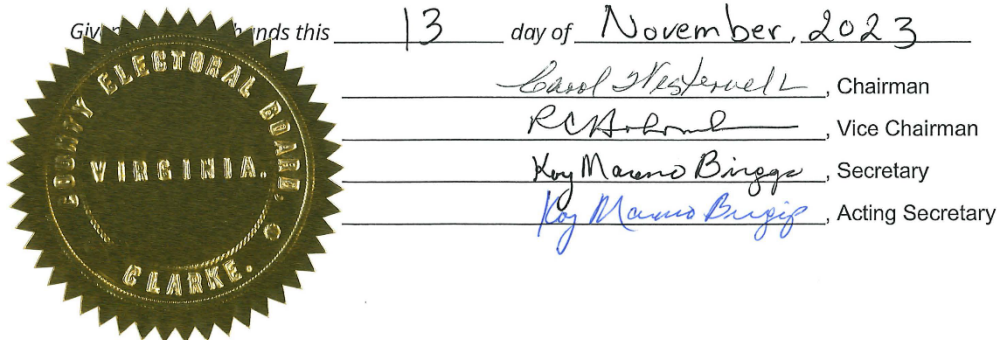 Given hands this 13 day of November, 2023
Carol Westervelt, Chairman
, Vice Chairman
Kay Briggs, Secretary
Kay, Acting Secretary
COUNTY ELECTORAL BOARD,
VIRGINIA.
CLARKE.